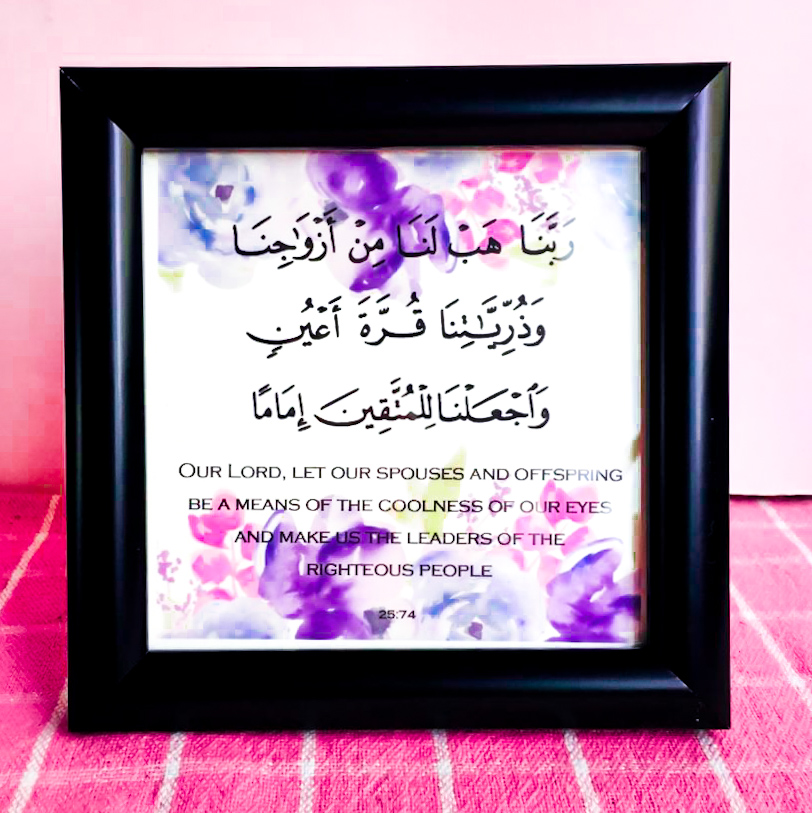 رَبَّنَا هَبْ لَنَا مِنْ أَزْوَٰجِنَا
وَذُرِّيَّـٰتِنَا قُرَّةَ أَعْيُنٍ
وَٱجْعَلْنَا لِلْمُتَّقِينَ إِمَامًا
OUR LORD, LET OUR SPOUSES AND OFFSPRING
BE A MEANS OF THE COOLNESS OF OUR EYES
AND MAKE US THE LEADERS OF THE
RIGHTEOUS PEOPLE
25:74